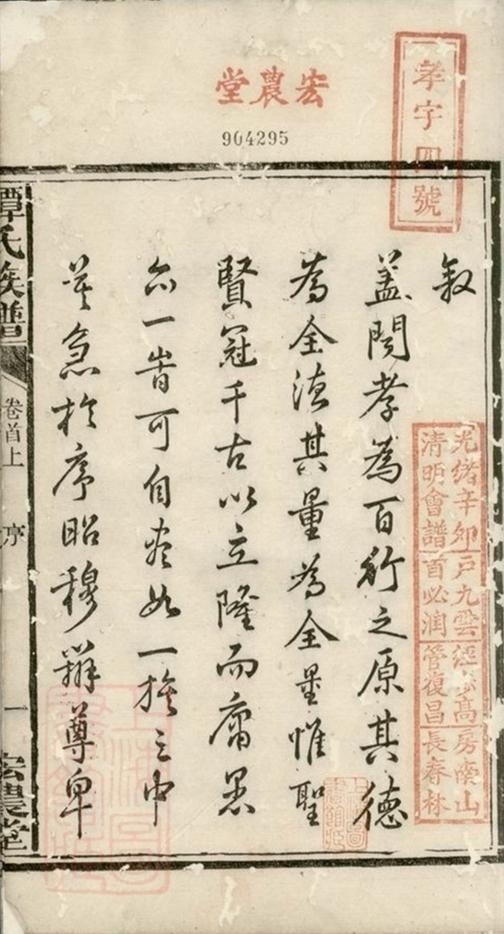 宏農堂
904295
孝字四號
敘
蓋聞孝為百行之原其德
為全德其量為全量惟聖
賢冠千古以立隆而庸愚
亦一皆可自盡如一族之中
莫急於序昭穆辨尊卑
光緒辛卯
清明會譜
戶九雲
首必潤
經高
管復昌
房南山
長春林
譚氏族譜
卷首上
序
一
宏農堂